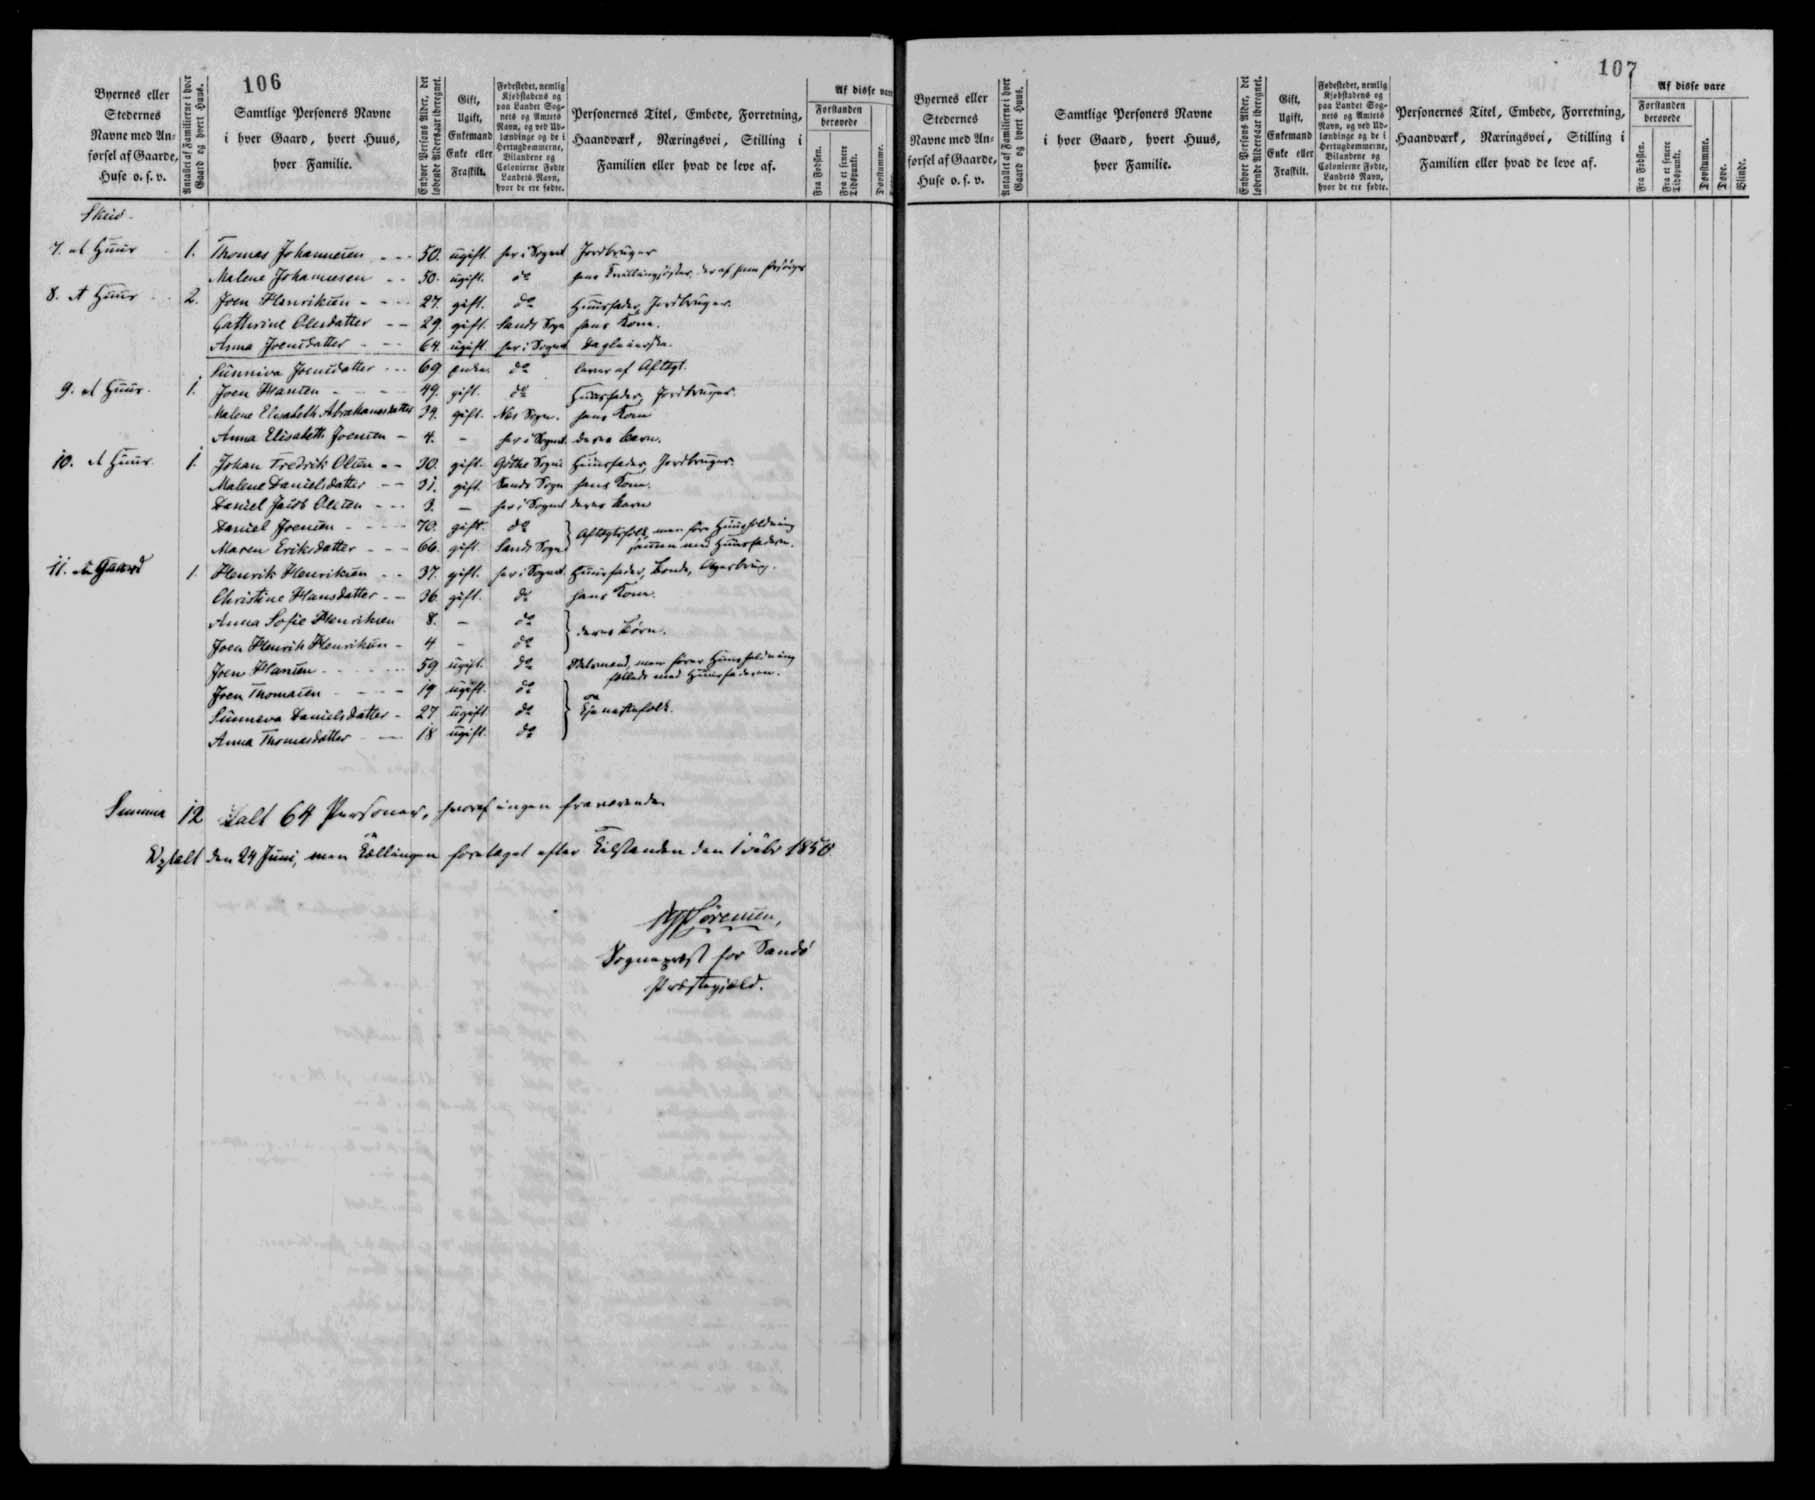 106
Byernes eller Stedernes Navne med Anførsel af Gaarde, Huse o. s. v.
Antallet af Familierne i hver Gaard og hvert Huus.
Samtlige Personers Navne i hver Gaard, hvert Huus, hver Familie.
Enhver Persons Alder, det løbende Aldersaar iberegnet.
Gift, Ugift, Enkemand Enke eller Fraskilt.
Fødestedet, nemlig Kjøbstadens og paa Landet Sognets og Amtets Navn, og ved Udlændinge og de i Hertugdømmerne, Bilandene og Colonierne Fødte Landets Navn, hvor de ere fødte.
Personernes Titel, Embede, Forretning, Haandværk, Næringsvei, Stilling i Familien eller hvad de leve af.
Af disse vare
Forstanden berøvede
Fra Fødslen.
Fra et senere Tidspunkt.
Døvstumme.
7. et Huus 1. Thomas Johannesen 50. ugift. her i Sognet Jordbruger
Malene Johannesen 50. ugift. do
8. et Huus 2. Joen Henriksen 27. gift. do Huusfader, Jordbruger.
Cathrine Olesdatter 29. gift. Sands Sogn hans Kone.
Anna Joensdatter 64. ugift her i Sognet
Sunniva Joensdatter 69 Enke do lever af Aftægt.
9. et Huus. 1. Joen Hansen 49. gift. do Huusfader, Jordbruger.
Malene Elisabeth Abrahamsdatter 39. gift. Nes Sogn. hans Kone
Anna Elisabeth Joensen 4. - her i Sognet. deres Barn.
10. et Huus. 1. Johan Fredrik Olsen 30. gift. Gøthe Sogn Huusfader, Jordbruger.
Malene Danielsdatter 31. gift. Sands Sogn hans Kone.
Daniel Jacob Olsen 3. - her i Sognet deres Barn
Daniel Joensen 70. gift. do } Aftægtsfolk, men føre Huusholdning
Maren Eriksdatter 66. gift. Sands Sogn sammen med Huusfaderen.
11. en Gaard 1. Henrik Henriksen 37. gift. her i Sognet. Huusfader, Bonde, Agerbrug.
Christine Hansdatter 36 gift. do hans Kone.
Anna Sofie Henriksen 8. - do } deres Børn.
Joen Henrik Henriksen 4 - do
Joen Hansen 59 ugift. do men fører Huusholdning
fælleds med Huusfaderen.
Joen Thomasen 19 ugift. do
Sunneva Danielsdatter 27 ugift do } Tjenestefolk.
Anna Thomasdatter 18 ugift. do
Summa 12 Ialt 64 Personer, hvoraf ingen fraværende
den 24 Juni, men Tællingen foretaget efter Tilstanden den 1 Febr 1850.
Sørensen,
Sognepræst for Sandø
Præstegjæld.
107
Byernes eller Stedernes Navne med Anførsel af Gaarde, Huse o. s. v.
Antallet af Familierne i hver Gaard og hvert Huus.
Samtlige Personers Navne i hver Gaard, hvert Huus, hver Familie.
Enhver Persons Alder, det løbende Aldersaar iberegnet.
Gift, Ugift, Enkemand Enke eller Fraskilt.
Fødestedet, nemlig Kjøbstadens og paa Landet Sognets og Amtets Navn, og ved Udlændinge og de i Hertugdømmerne, Bilandene og Colonierne Fødte, Landets Navn, hvor de ere fødte.
Personernes Titel, Embede, Forretning, Haandværk, Næringsvei, Stilling i Familien eller hvad de leve af.
Af disse vare
Forstanden berøvede
Fra Fødslen.
Fra et senere Tidspunkt.
Døvstumme.
Døve.
Blinde.